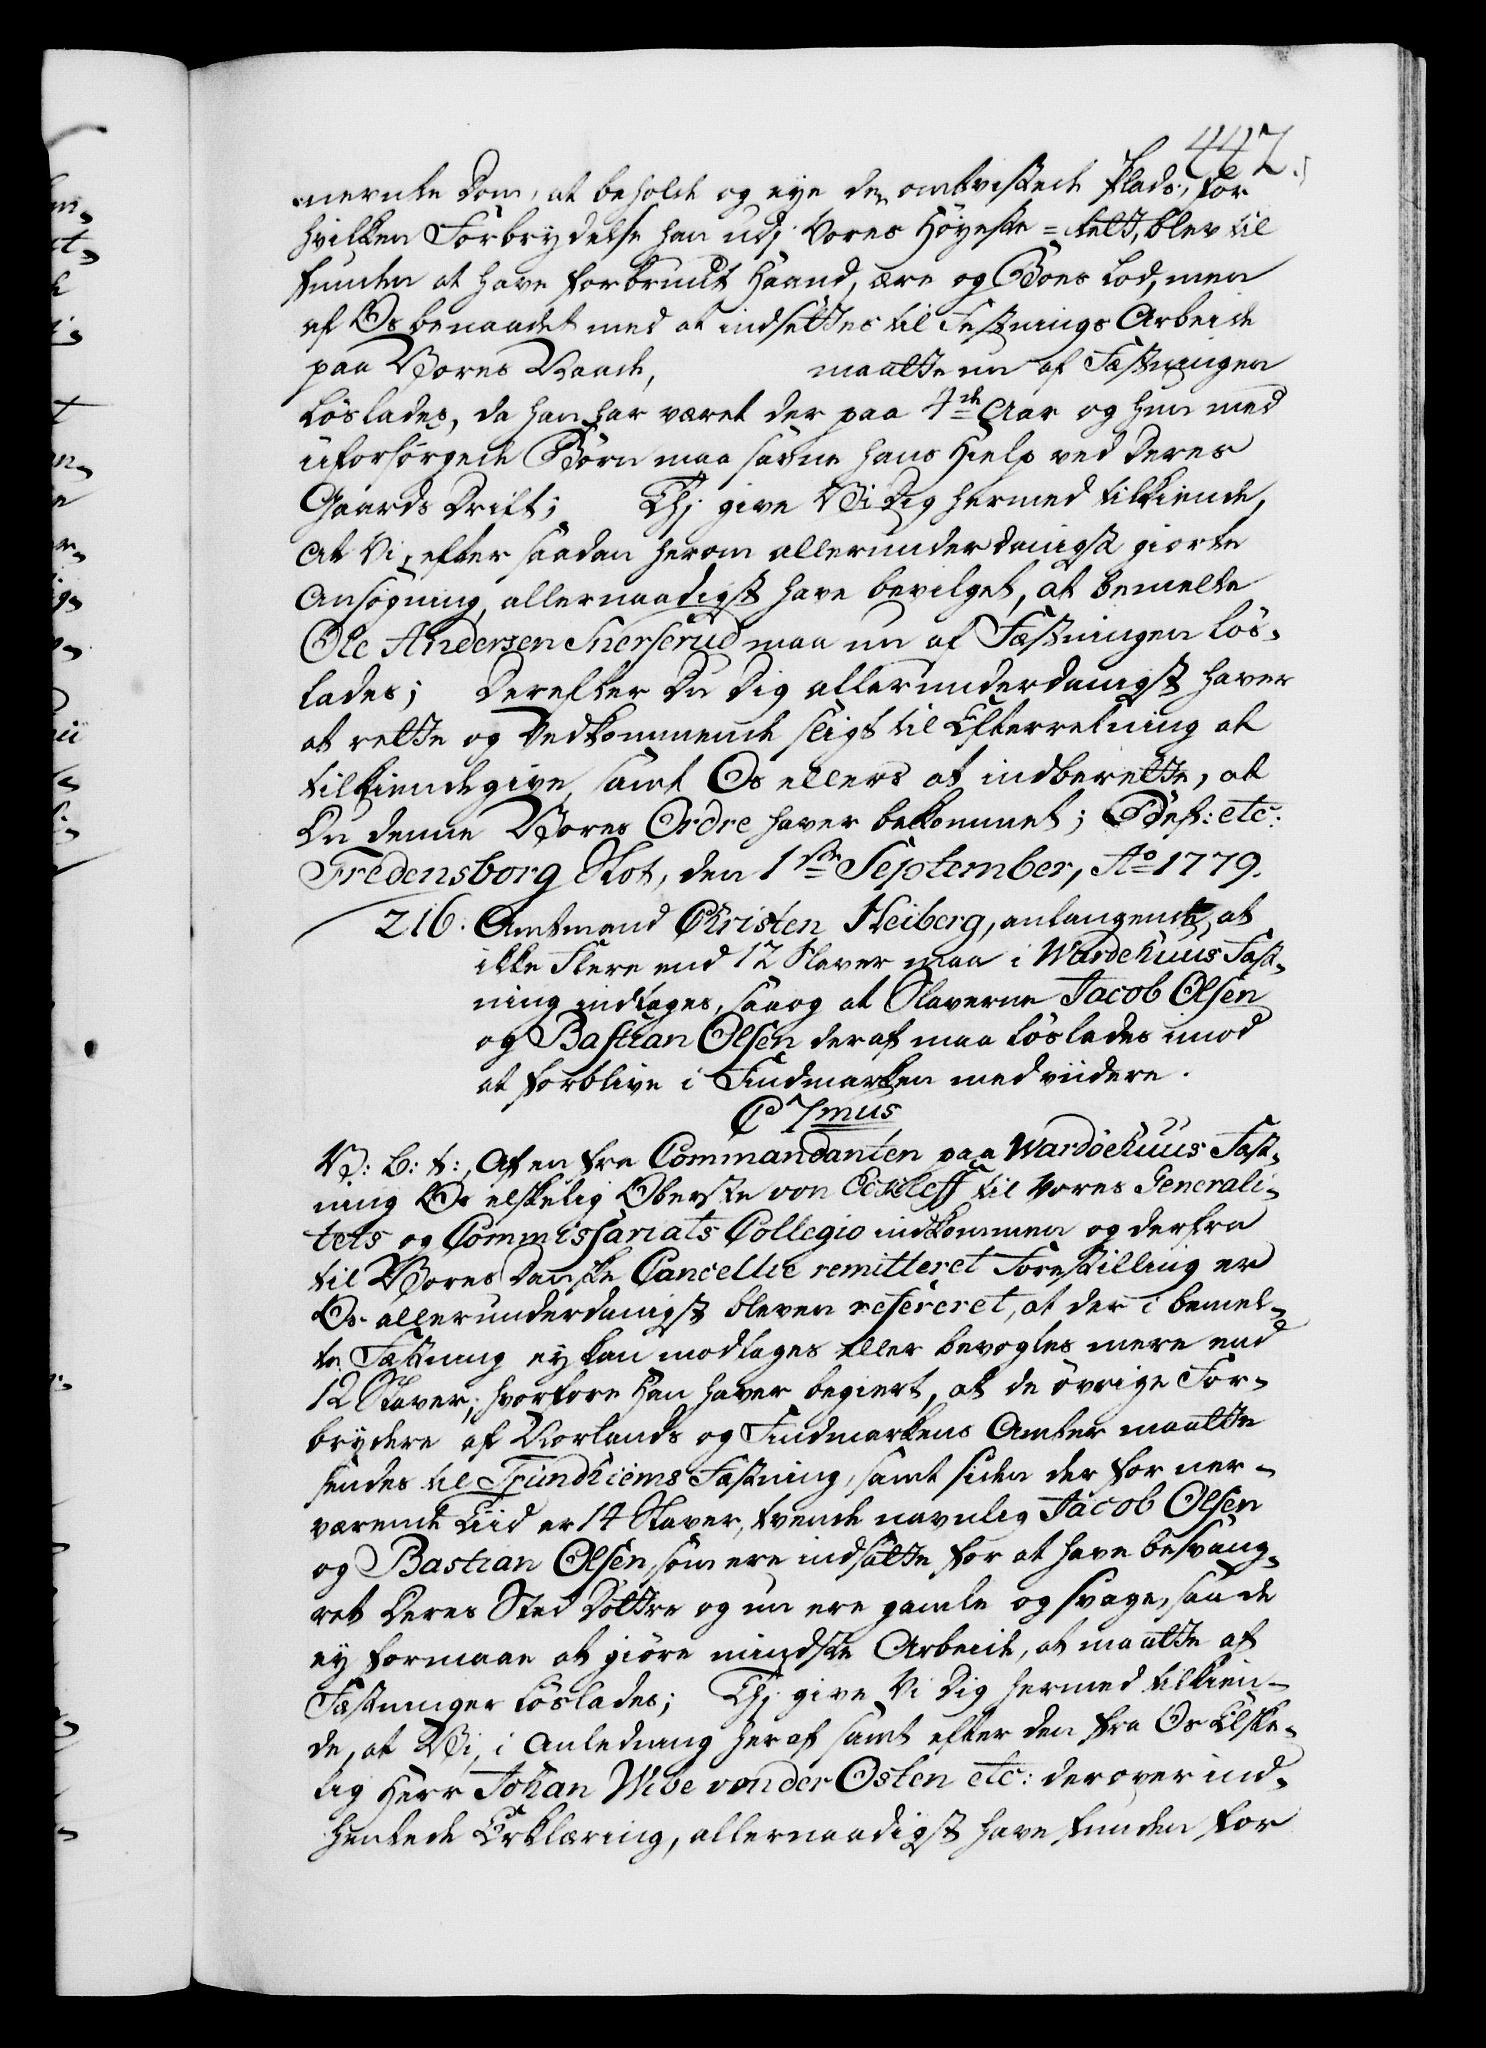 442.
nernte Dom, at beholde og eye den omtvistede Plads, for
hvilken Forbrydelse han udj Vores Høyeste=Rett, blev til
funden at have forbrudt Haand, ære og Boes Lod, men
af Os benaadet med at indsettes til Festnings Arbeide
paa Vores Naade, maatte nu af Fæstningen
løslades, da han har været der paa 4de Aar og hun med
uforsørgede Børn maa savne hans Hielp ved deres
Gaards Drift; Thj give Vi Dig hermed tilkiende,
at Vi, efter saadan herom allerunderdanigst giorte
Ansøgning, allernaadigst have bevilget, at bemelte
Ole Andersen Snerserud maa nu af Fæstningen løs-
lades; Derefter Du Dig allerunderdanigst haver
at rette og Vedkommende sligt til Efterretning at
tilkiendegive, samt Os ellers at indberette, at
Du denne Vores Ordre haver bekommet; etc:
Fredensborg Slot, den 1ste September, Ao 1779.
216. Amtmand Christen Heiberg, anlangende, at
ikke Flere end 12 Slaver maa i Wardehuus Fæst-
ning indtages, saa og at Slaverne Jacob Olsen
og Bastian Olsen deraf maa løslades imod
at forblive i Findmarken med viidere.
C 7mus
V: G: t:, Af en fra Commandanten paa Wardøehuus Fæst-
ning Os elskelig Oberste von Eckleff til Vores Generali-
tets og Commissariats Collegio indkommen og derfra
til Vores Danske Cancellie remitteret Forestilling er
Os allerunderdanigst bleven refereret, at der i bemel-
te Fæstning ey kan modtages eller bevogtes mere end
12 Slaver; hvorfore Han haver begiert, at de øvrige For-
brydere af Norlands og Findmarkens Amter maatte
sendes til Trundhiems Fæstning, samt siden der for nær-
værende Tiid er 14 Slaver, tvende navnlig Jacob Olsen
og Bastian Olsen, som ere indsatte for at have besvang-
ret deres Sted Døttre og nu ere gamle og svage, saa de
ey formaae at giøre mindste Arbeide, at maatte af
Fæstninger løslades; Thj give Vi Dig hermed tilkien-
de, at Vi, i Anledning heraf samt efter den fra Os Elske-
lig Herr Johan Wibe von der Osten etc: derover ind-
hentede Erklæring, allernaadigst have funden for